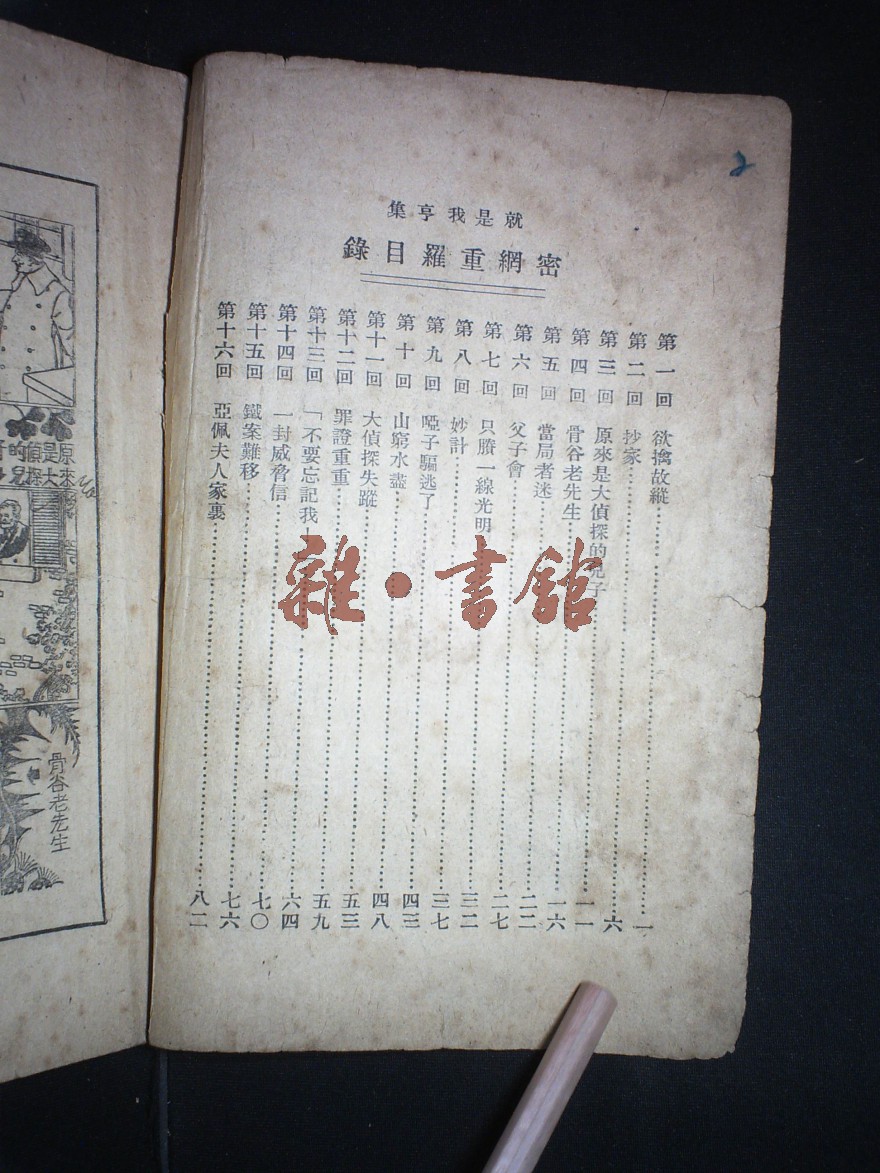 就是我亨集
密網重羅目錄
第一回 欲擒故縱……一
第二回 抄家……六
第三回 原來是大偵探的兒子……一一
第四回 骨谷老先生……一六
第五回 當局者迷……二二
第六回 父子會……二七
第七回 只賸一線光明……三二
第八回 妙計……三七
第九回 啞子驅逃了……四三
第十回 山窮水盡……四八
第十一回 大偵探失蹤……五三
第十二回 罪證重重……五九
第十三回 「不要忘記我……六四
第十四回 一封威脅信……七〇
第十五回 鐵案難移……七六
第十六回 亞佩夫人家裏……八二
2
雜·書館
原來是大偵探的兒
骨谷老先生